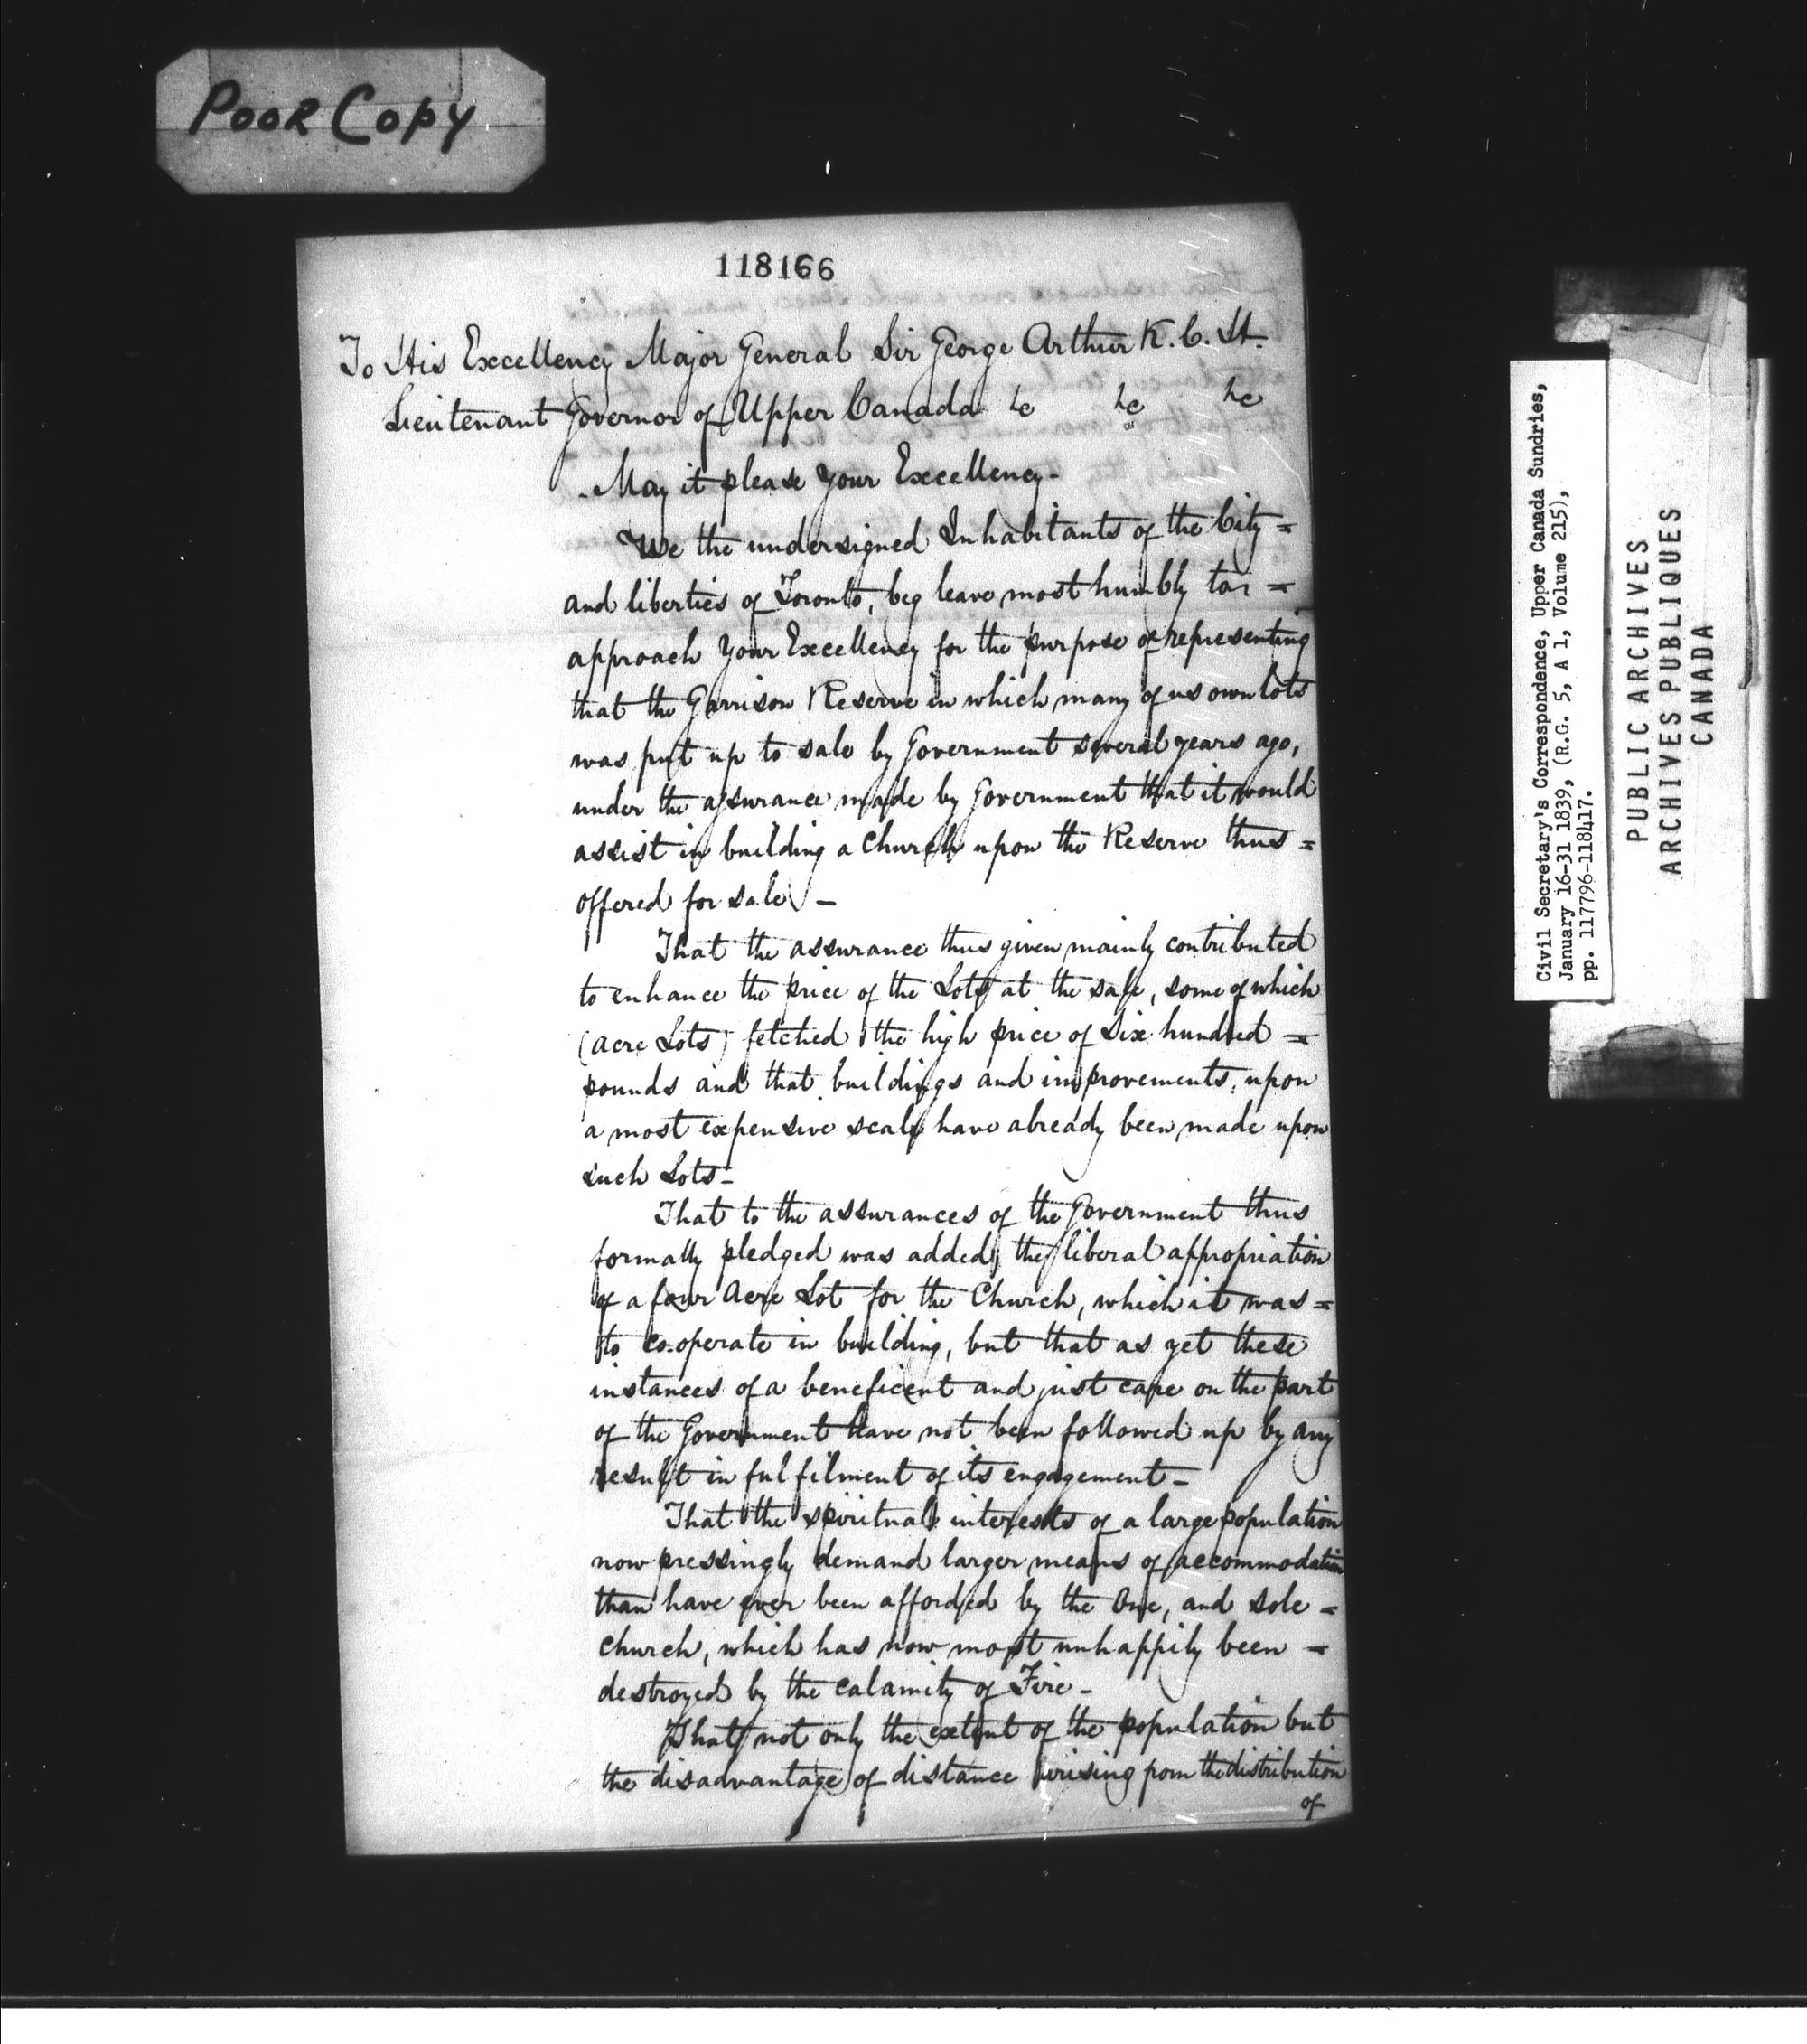 POOR COPY
118166
To His Excellency Major General Sir George Arthur K.C.H.
Lieutenant Governor of Upper Canada &c &c &c
May it please Your Excellency-
We the undersigned Inhabitants of the City =
and liberties of Toronto, beg leave most humbly to =
approach Your Excellency for the purpose of representing
that the Garrison Reserve in which many of us own lots
was put up to sale by Government several years ago,
under the assurance made by Government that it would
assist in building a Church upon the Reserve thus =
offered for sale -
That the assurance thus given mainly contributed
to enhance the price of the Lots at the sale, some of which
(acre Lots) fetched the high price of Six hundred =
pounds and that buildings and improvements, upon
a most expensive scale have already been made upon
such Lots-
That to the assurances of the Government thus
formally pledged was added, the liberal appropriation
of a four Acre Lot for the Church, which it was =
to co-operate in building, but that as yet these
instances of a beneficent and just care on the part
of the Government have not been followed up by any
result in fulfilment of its engagement -
That the spiritual interests of a large population
now pressingly demand larger means of accommodation
than have ever been afforded by the One, and sole =
Church, which has now most unhappily been =
destroyed by the calamity of Fire -
That not only the extent of the population but
the disadvantage of distance arising from the distribution
of
Civil Secretary's Correspondence, Upper Canada Sundries,
January 16-31 1839, (R.G. 5, A 1, Volume 215),
pp. 117796-118417.
PUBLIC ARCHIVES
ARCHIVES PUBLIQUES
CANADA